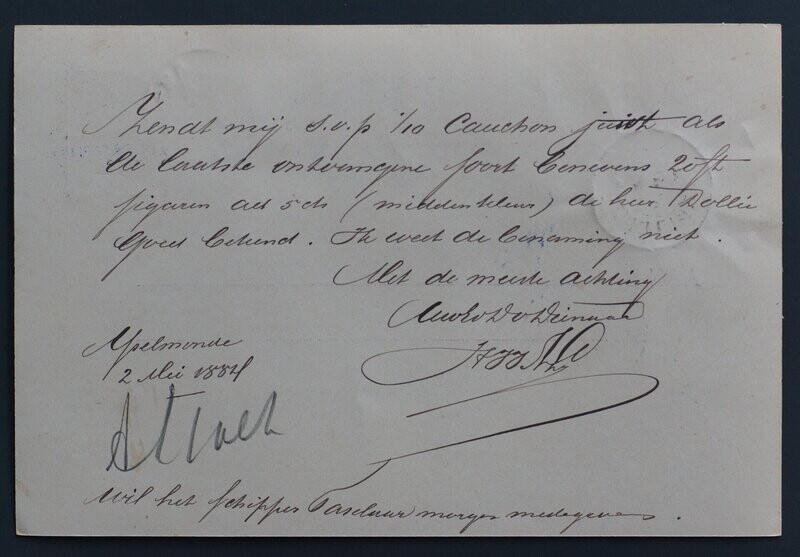 Zendt mij s.v.p 1/10 Cauchon juist als
de laatste ontvangene soort benevens 20 st
sigaren ad 5 cts (middenkleur) de heer Dollée
goed bekend. Ik weet de benaming niet.
Met de meeste achting
UwEdDvDienaar
IJselmonde
2 Mei 1884
wil het schipper morgen medegeven.